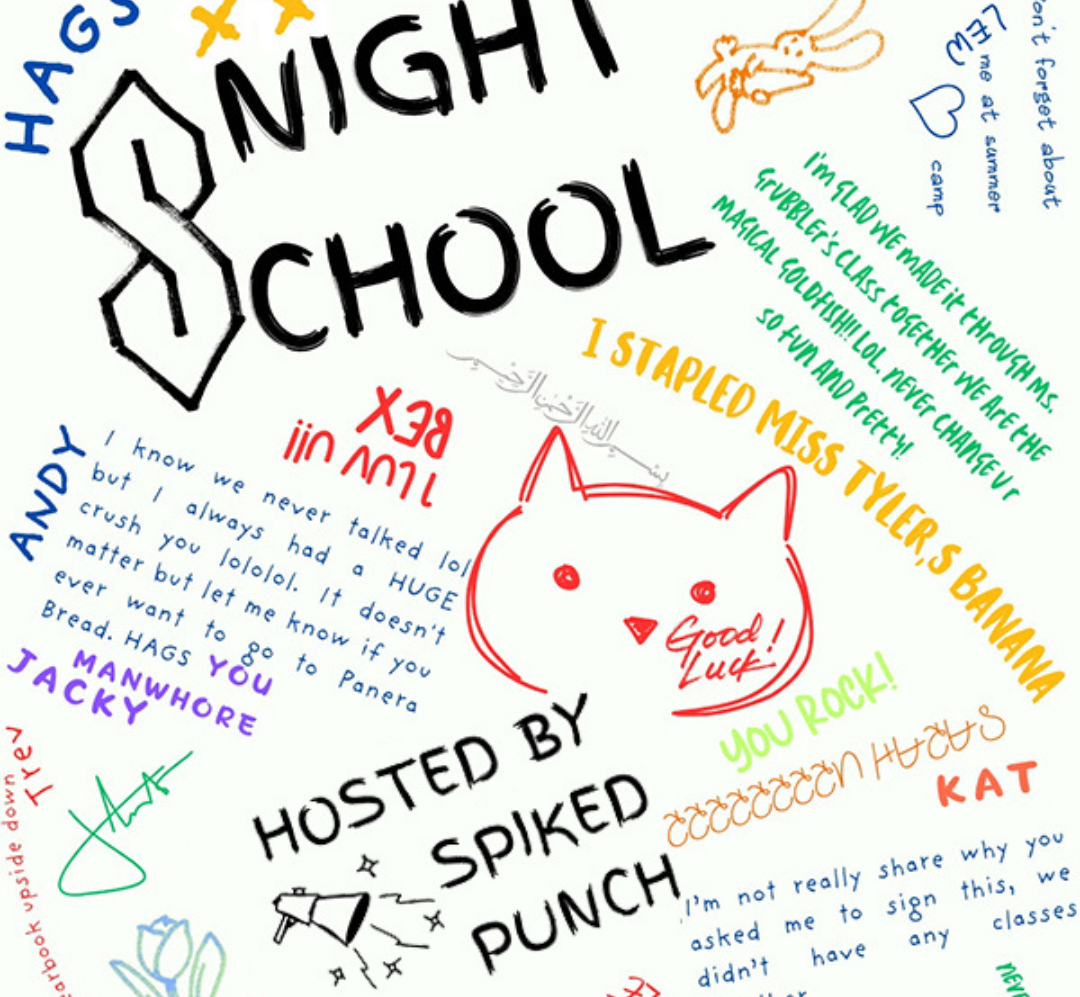 HAGS
NIGHT
SCHOOL
on't forget about
me at summer
camp
I'm GLAD WE MADE it tHrOUGH Ms.
GrUBBLEr's CLASS toGEtHEr WE ArE tHE
MAGICAL GOLDFISH!! LOL. NEVEr CHANGE Ur
so fUN AND PrEttY!
I STAPLED MISS TYLER,S BANANA
بسم الله الرحمن الرحيم
I LUV Uii
BEX
ANDY
I know we never talked lol
but I always had a HUGE
crush you lololol. It doesn't
matter but let me know if you
ever want to go to Panera
Bread. HAGS
YOU
MANWHORE
JACKY
Good
Luck!
YOU ROCK!
SARAH
KAT
HOSTED BY
SPIKED
PUNCH
Trev
earbook upside down
I'm not really share why you
asked me to sign this, we
didn't have any classes